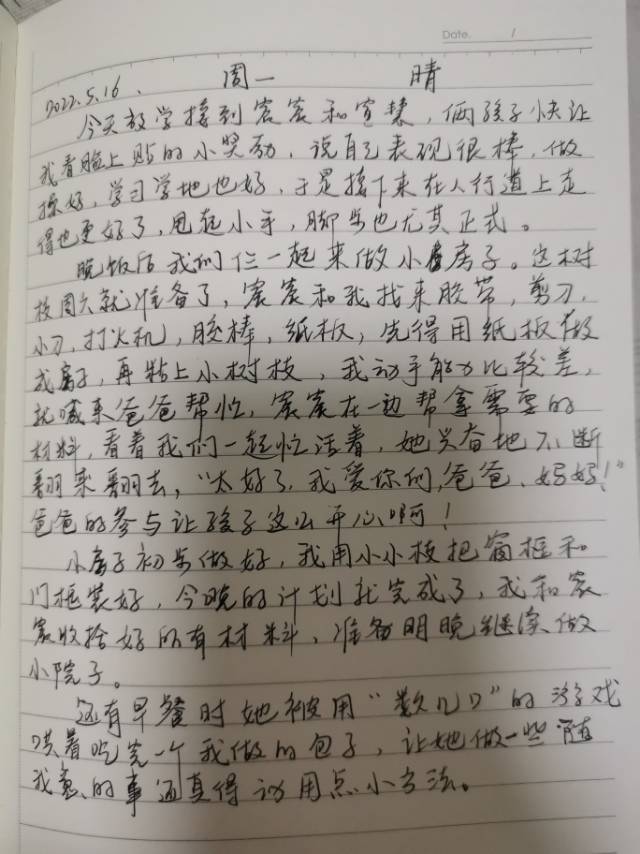 Date.    /
2022.5.16.    周一    晴
今天放学接到宸宸和宣慧,俩孩子快让
我看脸上贴的小奖励,说自己表现很棒,做
操好,学习学地也好,于是接下来在人行道上走
得也更好了,甩起小手,脚步也尤其正式。
晚饭后我们仨一起来做小房子。这树
枝周六就准备了,宸宸和我找来胶带,剪刀,
小刀,打火机,胶棒,纸板,先得用纸板做
成房子,再粘上小树枝,我动手能力比较差,
就喊来爸爸帮忙,宸宸在一边帮拿需要的
材料,看着我们一起忙活着,她兴奋地不断
翻来翻去,“太好了,我爱你们,爸爸、妈妈!”
爸爸的参与让孩子这么开心啊!
小房子初步做好,我用小小枝把窗框和
门框装好,今晚的计划就完成了,我和宸
宸收拾好所有材料,准备明晚继续做
小院子。
还有早餐时她被用“数几口”的游戏
哄着吃完一个我做的包子,让她做一些随
我意的事还真得动用点小方法。